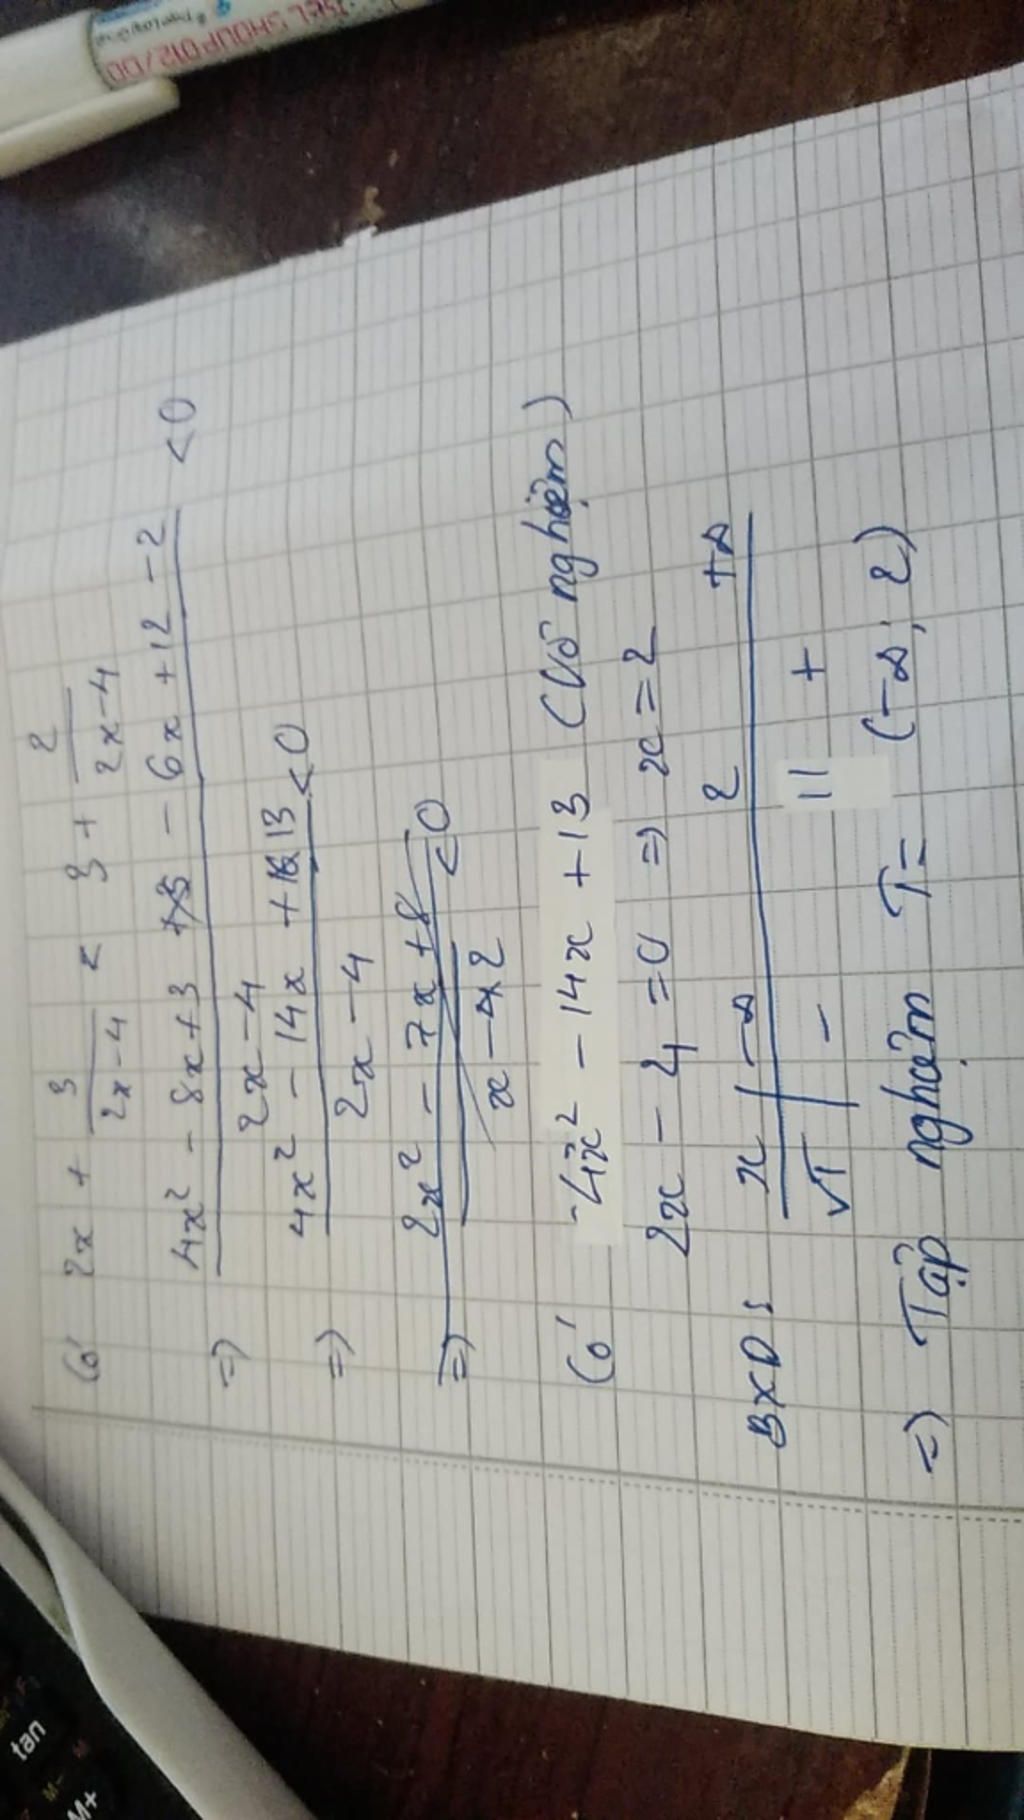 Có 2x + 3/(2x-4) < 3 + 2/(2x-4)
=> (4x² - 8x + 3 - 6x + 12 - 2)/(2x-4) < 0
=> (4x² - 14x + 13)/(2x-4) < 0
=> (2x² - 7x + 8)/(x-2) < 0
Có 4x² - 14x + 13 (Vô nghiệm)
2x - 4 = 0 => x = 2
BXD: x | -∞ 2 +∞
VT | - || +
=> Tập nghiệm T= (-∞; 2)
tan
M+